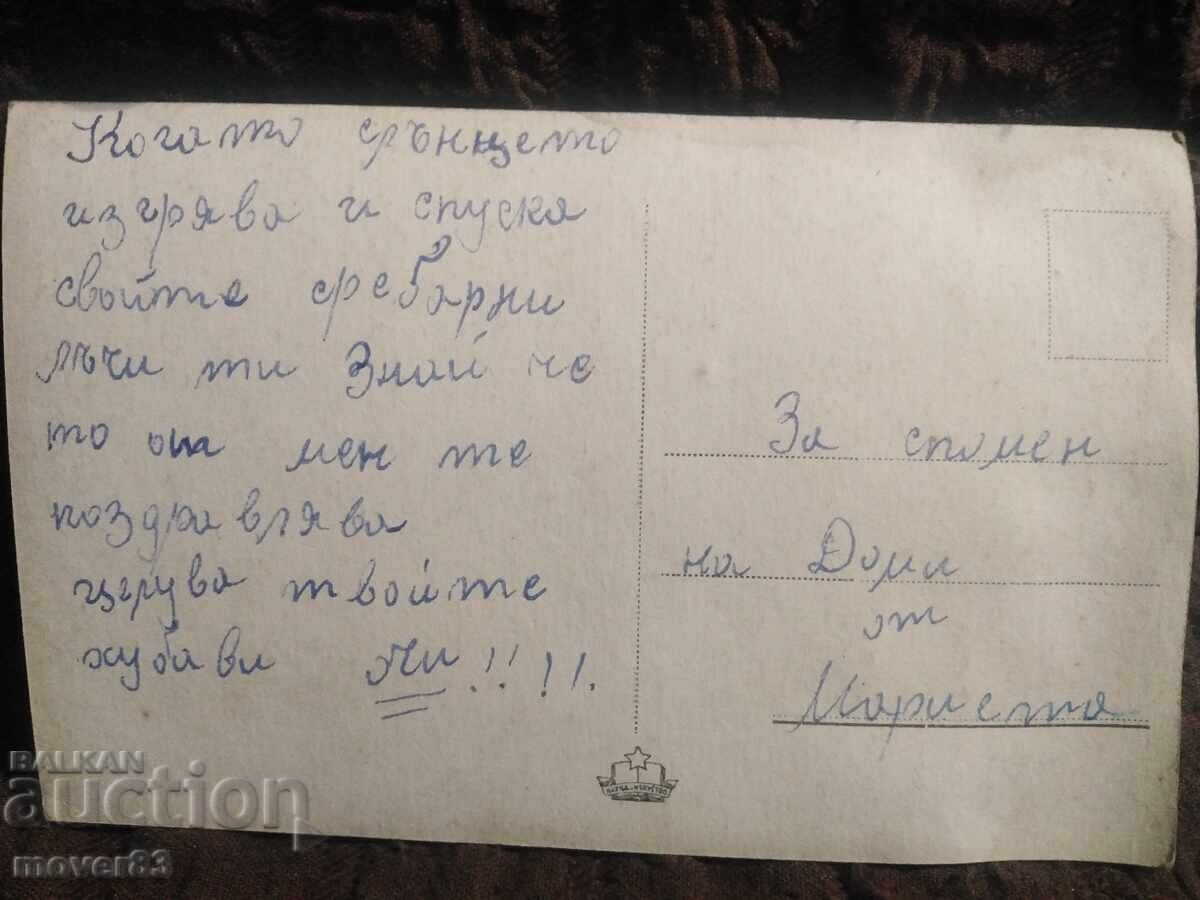 Когато слънцето
изгрява и спуска
свойте сребарни
лъчи ти Знай че
то от мен те
поздравлява
целува твойте
хубави Очи!!!!.
За спомен
на Доми
от
Мариета
НАУКА И ИЗКУСТВО
BALKAN
auction
mover83